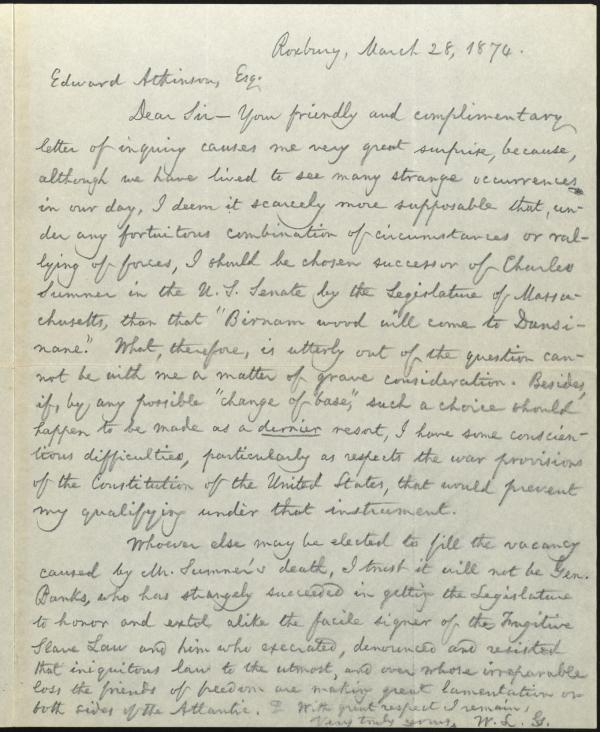 Roxbury, March 28, 1874.
Edward Atkinson, Esq.
Dear Sir— Your friendly and complimentary
letter of inquiry causes me very great surprise, because,
although we have lived to see many strange occurrences
in our day, I deem it scarcely more supposable that, un-
der any fortuitous combination of circumstances or ral-
lying of forces, I should be chosen successor of Charles
Sumner in the U. S. Senate by the Legislature of Massa-
chusetts, than that "Birnam wood will come to Dunsi-
nane." What, therefore, is utterly out of the question can-
not be with me a matter of grave consideration. Besides,
if, by any possible "change of base," such a choice should
happen to be made as a dernier resort, I have some conscien-
tious difficulties, particularly as respects the war provisions
of the Constitution of the United States, that would prevent
my qualifying under that instrument.
Whoever else may be elected to fill the vacancy
caused by Mr. Sumner's death, I trust it will not be Gen.
Banks, who has strangely succeeded in getting the Legislature
to honor and extol alike the facile signer of the Fugitive
Slave Law and him who execrated, denounced and resisted
that iniquitous law to the utmost, and over whose irreparable
loss the friends of freedom are making great lamentation on
both sides of the Atlantic. With great respect I remain,
Very truly yours, W. L. G.